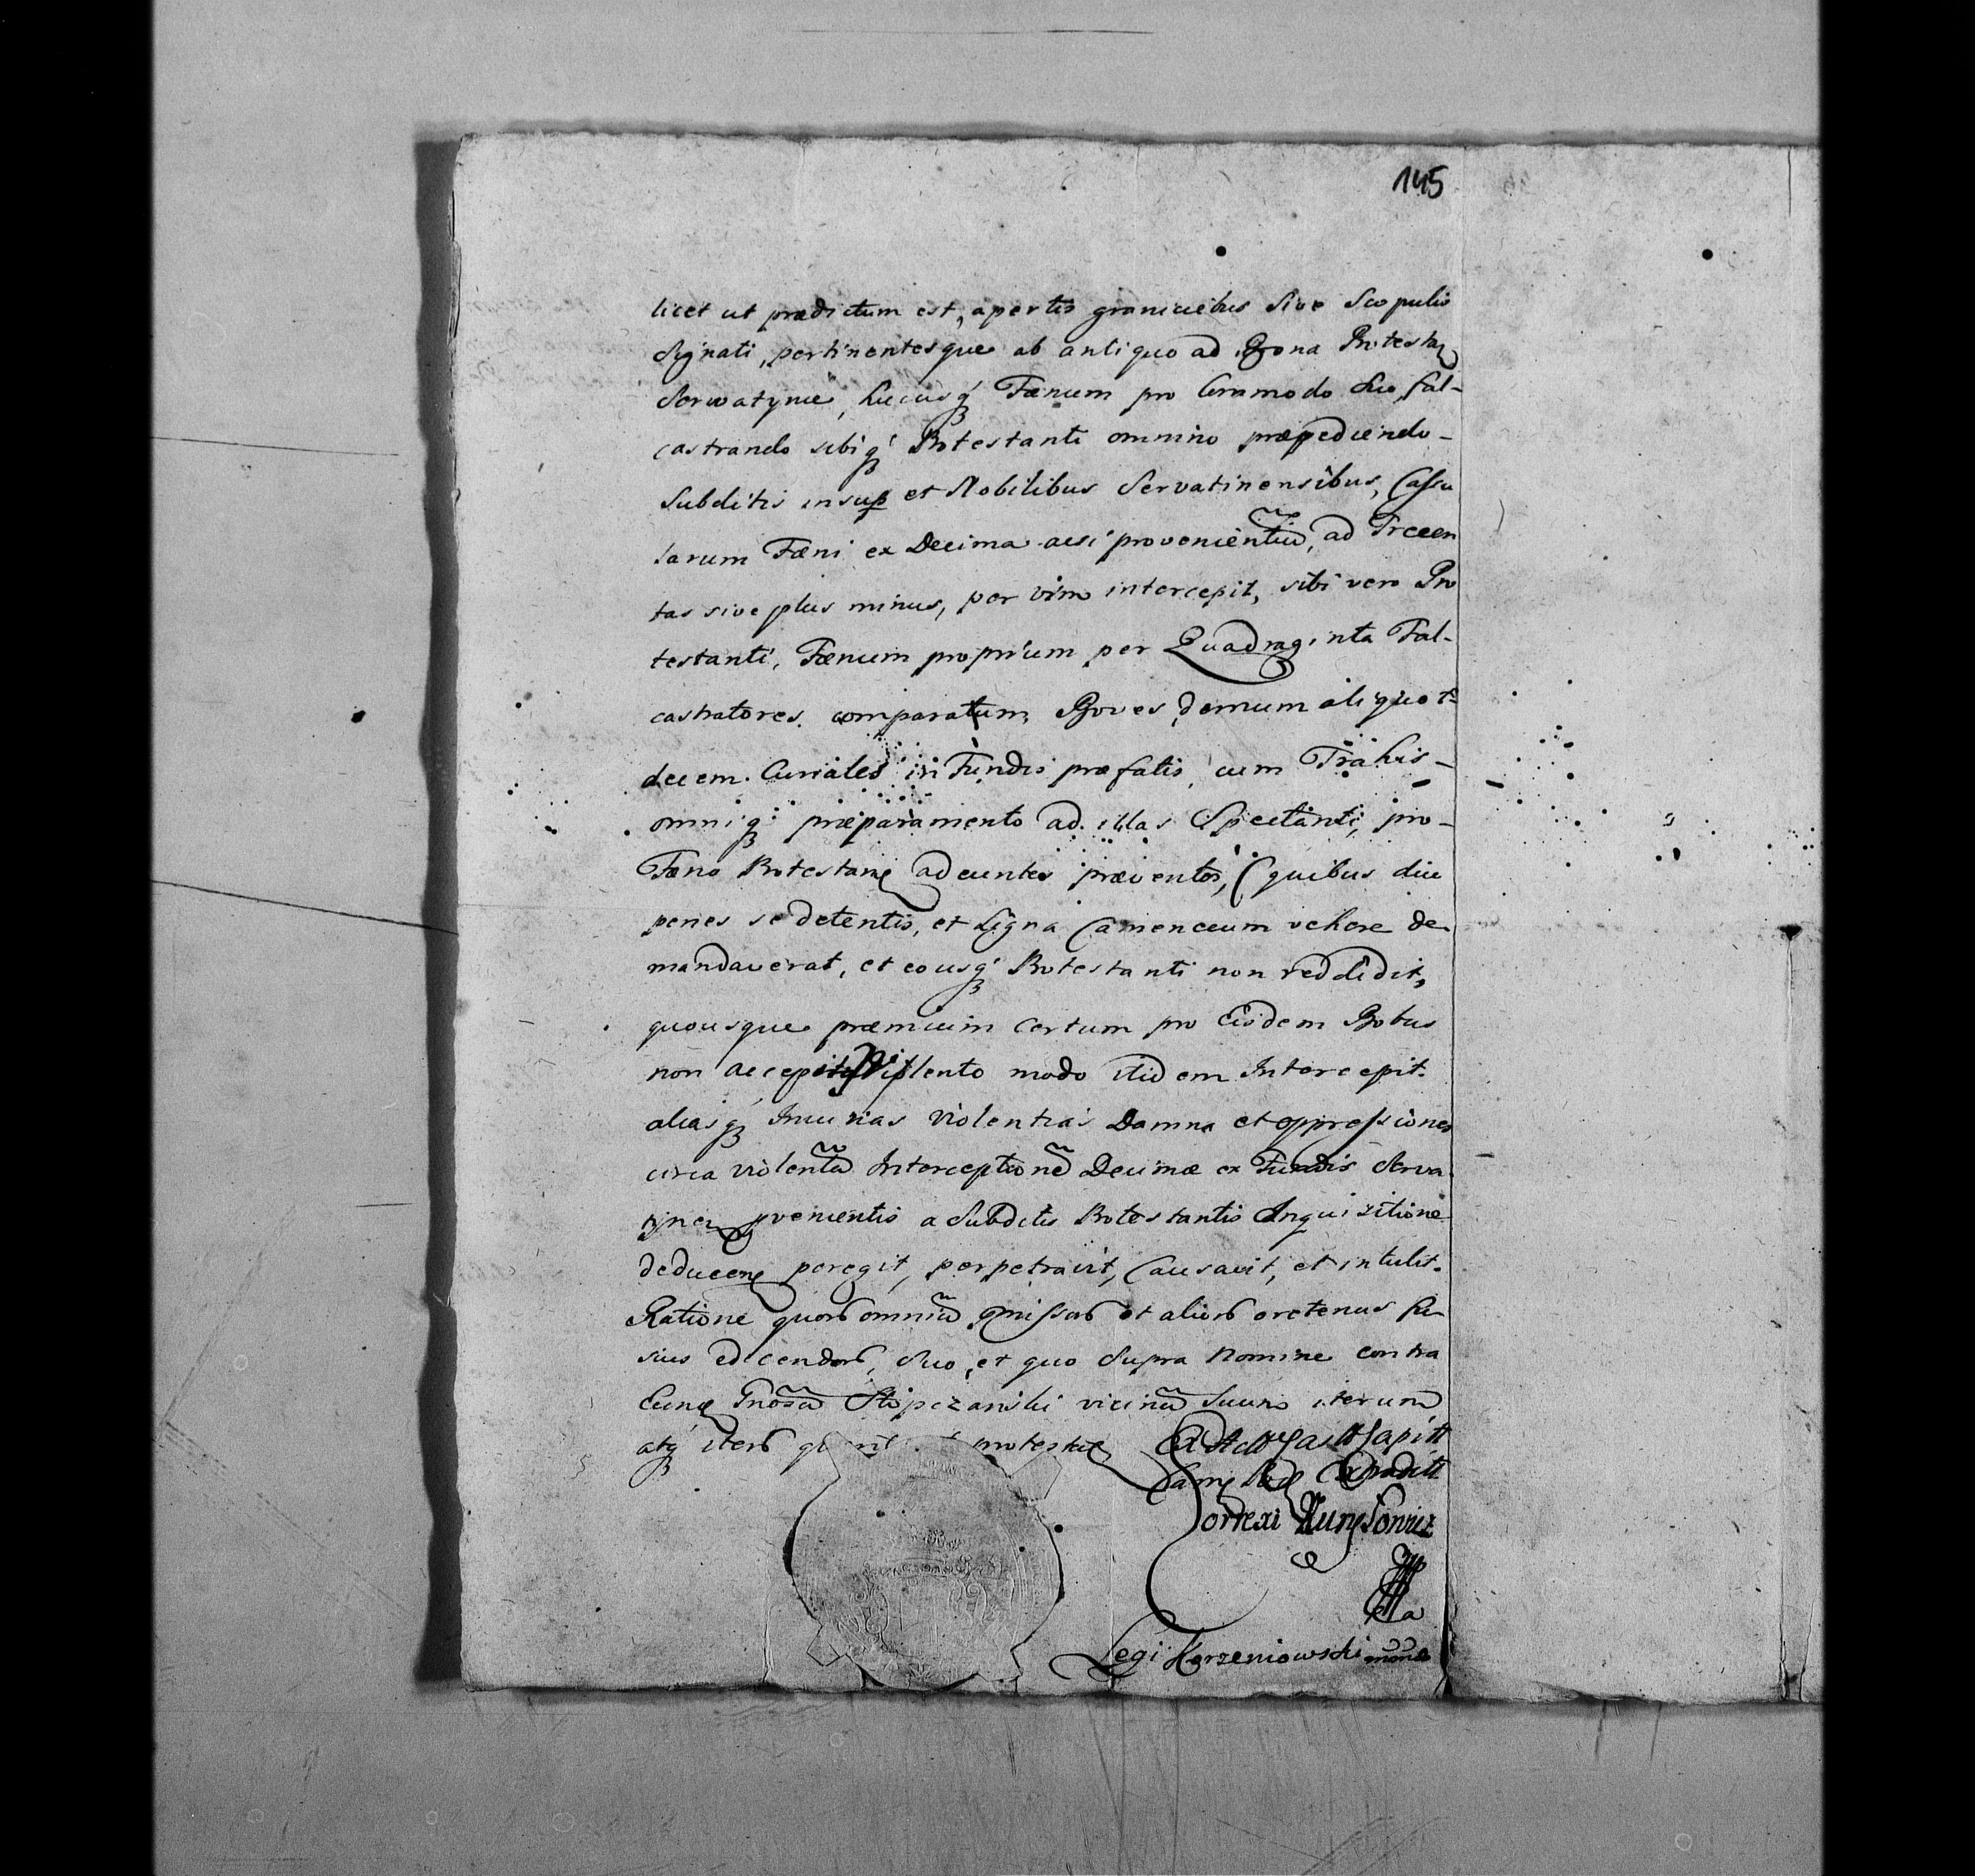 145
licet ut prædictum est, apertis graniciebus sive Scopulis
signati, pertinentesque ab antiquo ad Bona Protestan
Serwatynie, hucusq Fænum pro Commodo suo, fal-
castrando sibiq Protestanti omnino præpediendo-
Subditis insup et Nobilibus Servatinensibus, Cassu
larum Fæni ex Decima provenientiū, ad Trecen
tas sive plus minus, per vim intercepit, sibi vero Pro
testanti, Fænum proprium per Quadraginta Fal-
castratores comparatum, Boves demum aliquot
decem Curiales in Fundis præfatis, cum Trahis-
omniq præparamento ad illas Spectanti, pro-
Fæno Protestan adeuntes præventos, (quibus diu
penes se detentis, et Ligna Camenecum vehere de
mandaverat, et eousq Protestanti non reddidit,
quousque præmium certum pro Eisdem Bobus
non accepit, violento modo itidem Intercepit.
aliasq Iniurias violentias Damna et oppressiones
circa violentā Interceptionē Decimæ ex Fundis Serva
provenientis a Subditis Protestantis Inquizitione
deducen peregit, perpetravit, Causavit, et intulit.
Ratione quor omniū præmissor et alior oretenus fu
sius edicendor, suo, et quo supra Nomine contra
Eund vicinū suum iterum
atq iter protestat
Ex Act Cast Capit
Came Pod Expedit
Correxi
Legi Korzeniowski